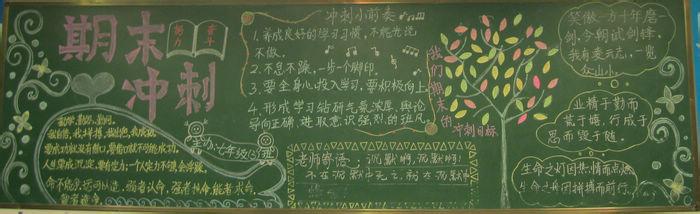 期末
冲刺
努力 奋斗
冲刺小前奏
1.养成良好的学习习惯,不能光说
不做。
2.不急不躁,一步一个脚印。
3.要全身心投入学习,要积极向上
4.形成学习钻研气氛浓厚,舆论
导向正确,进取意识强烈的班风。
我们期末的
冲刺目标
笑傲一方十年磨一
剑,今朝试剑锋,
我有凌云志,一览
众山小。
业精于勤而
荒于嬉,行成于
思而毁于随。
生命之灯因热情而点燃
生命之舟因拼搏而前行。
老师寄语:沉默啊,沉默啊!
不在沉默中死亡,就在沉默中
主办:七年级(3)班
勤学,勤思,勤问。
我自信,我拼搏,我出色,我成功。